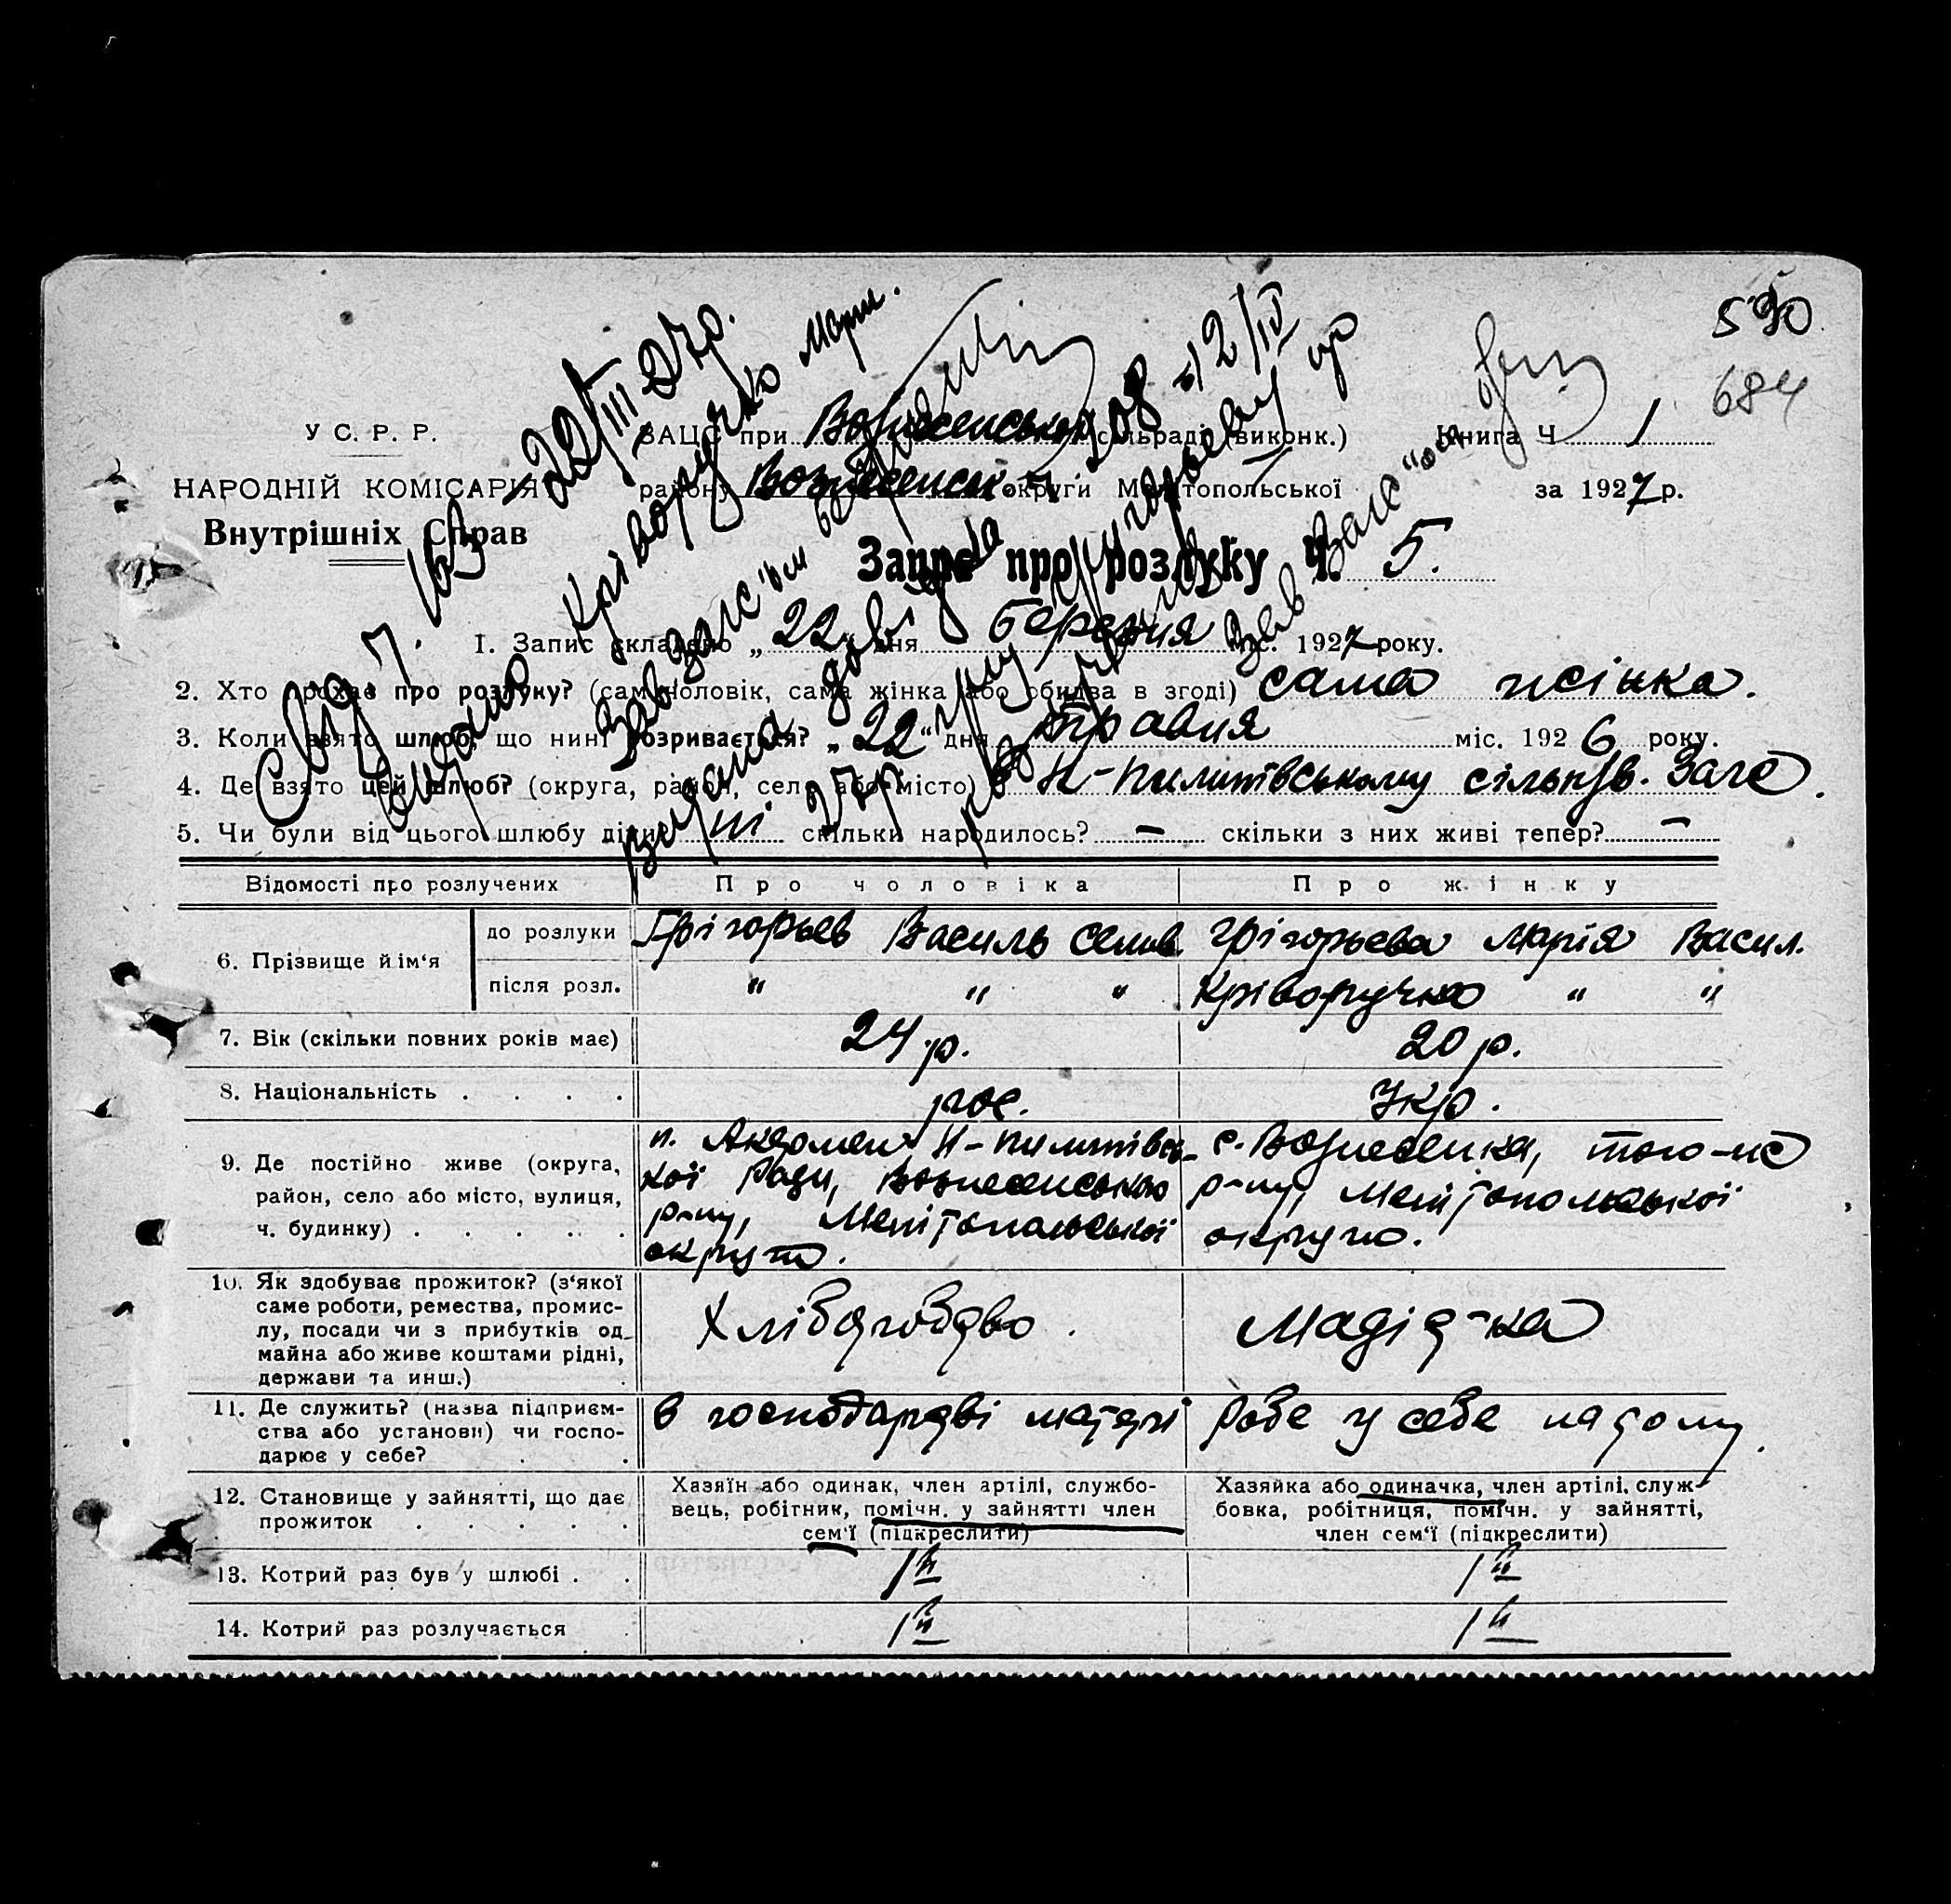 590
684
У С. Р. Р.
НАРОДНІЙ КОМІСАРІЯТ
Внутрішніх Справ
ЗАЦС при Вознесенській сільраді (виконк.) Книга Ч. 1
району Вознесенськ. округи Мелітопольської за 1927 р.
Запис про розлуку Ч. 5.
Свід. 7. 163 22/III 27р.
видано Кріворучко Марии.
Зав загс"ом
видана довідка 208 12/IV
27р гр.
розлуку Зав Загс"ом
І. Запис складено „22" дня березня міс. 1927 року.
2. Хто прохає про розлуку? (сам чоловік, сама жінка або обидва в згоді) сама жінка.
3. Коли взято шлюб, що нині розривається? „22" дня травня міс. 1926 року.
4. Де взято цей шлюб? (округа, район, село або місто) в Н-Пилипівському сільзв. Загсе.
5. Чи були від цього шлюбу діти? ні скільки народилось? — скільки з них живі тепер? —
Відомості про розлучених Про чоловіка Про жінку
6. Прізвище й ім'я до розлуки Грігорьев Василь Семов Грігорьева Марія Васил.
після розл. " " " Кріворучко " "
7. Вік (скільки повних років має) 24 р. 20 р.
8. Національність . . . . рос. Укр.
9. Де постійно живе (округа, район, село або місто, вулиця, ч. будинку) . . . . .
п. Акермен Н-Пилипівсь-
кої Ради, Вознесенського
р-ну, Мелітопольської
округи.
с. Вознесенка, того-же
р-ну, Мелітопольської
округи.
10. Як здобуває прожиток? (з'якої
саме роботи, ремества, промис-
лу, посади чи з прибутків од
майна або живе коштами рідні,
держави та инш.)
Хліборобство. Модіст-ка
11. Де служить? (назва підприєм-
ства або установи) чи госпо-
дарює у себе?
в господарстві матері робе у себе на дому.
12. Становище у зайнятті, що дає
прожиток . . . . .
Хазяїн або одинак, член артілі, службо-
вець, робітник, помічн. у зайнятті член
сем'ї (підкреслити)
Хазяйка або одиначка, член артілі, служ-
бовка, робітниця, помічн. у зайнятті,
член сем'ї (підкреслити)
13. Котрий раз був у шлюбі . . 1й 1й
14. Котрий раз розлучається 1й 1й